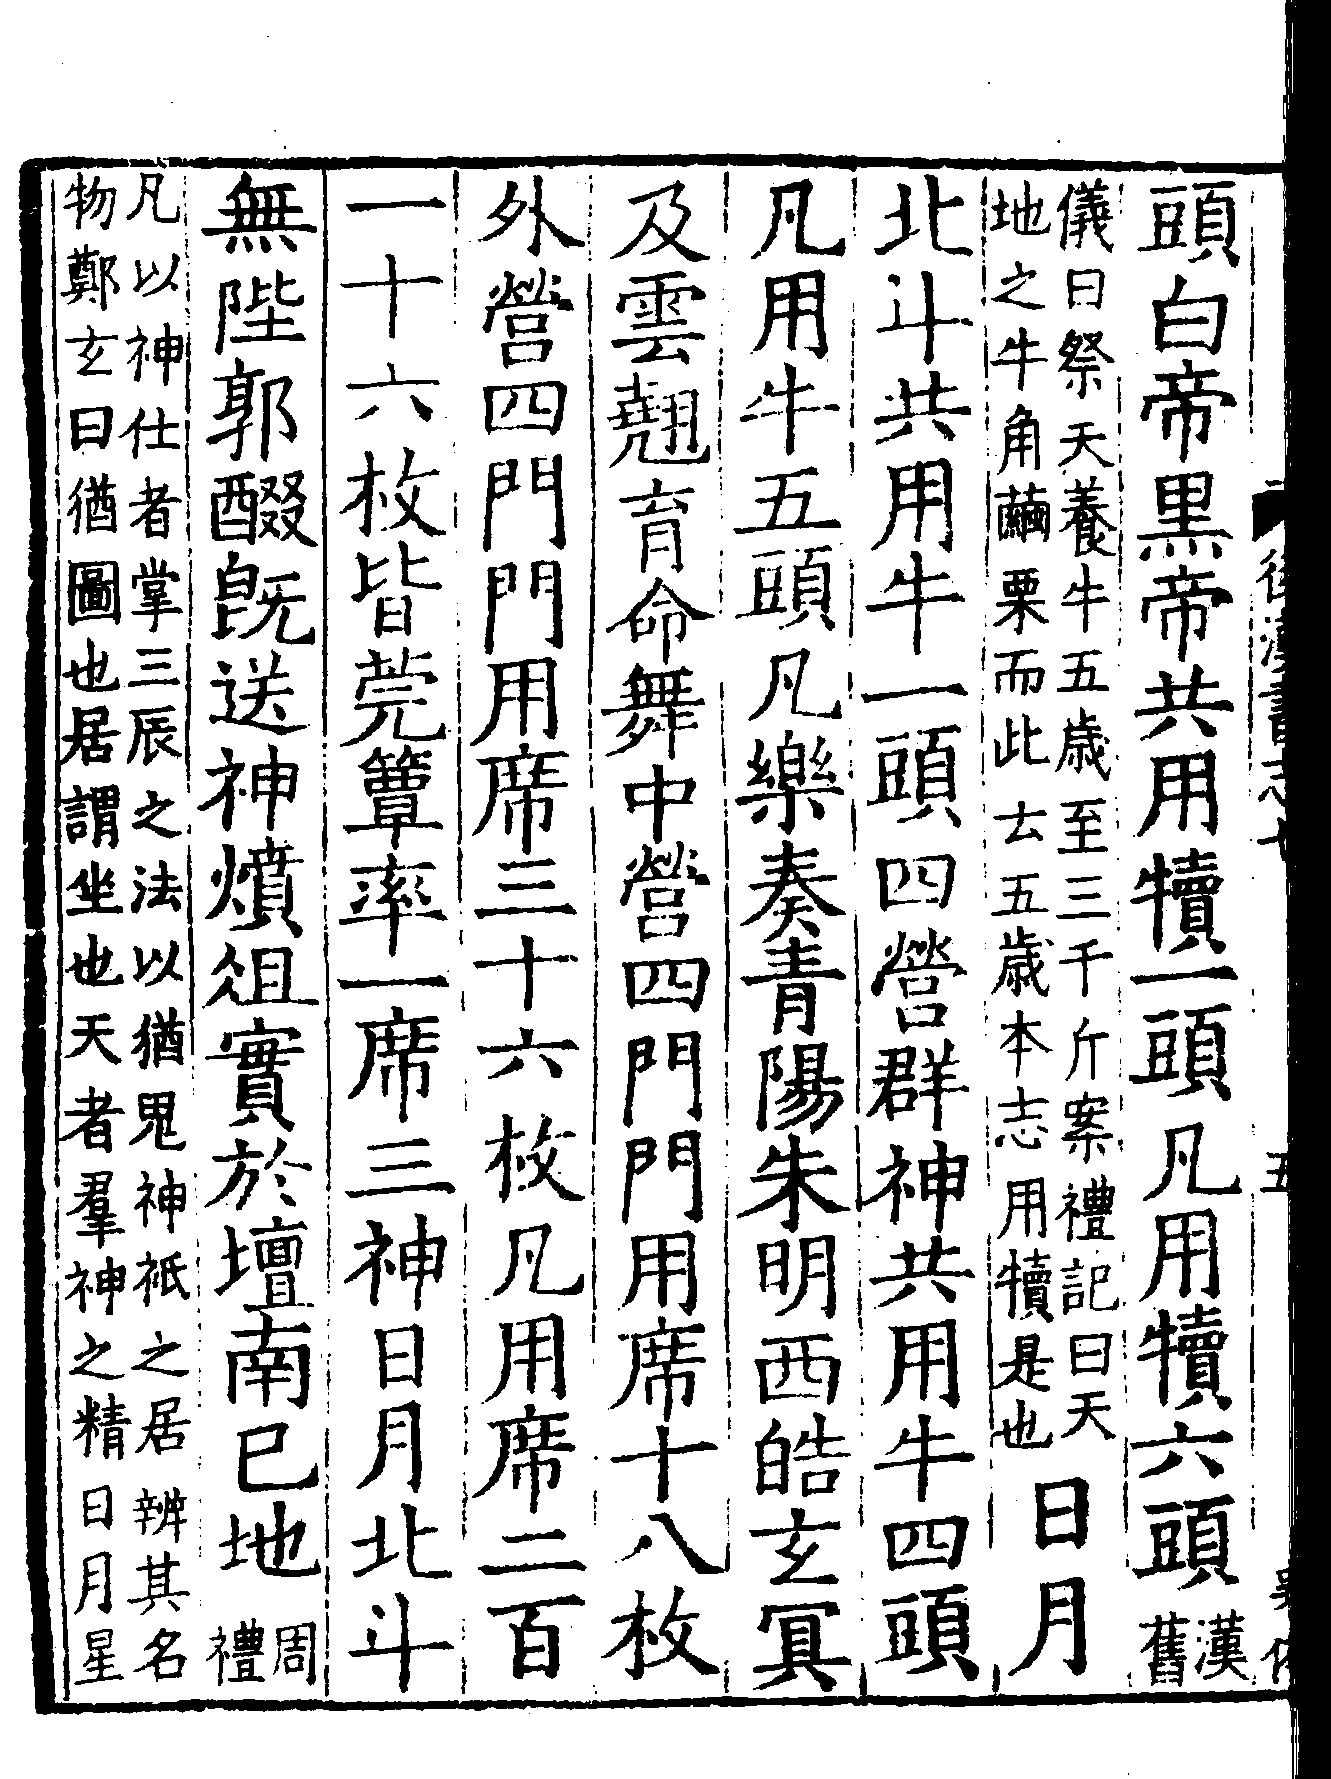 頭白帝黒帝共用犢一頭凡用犢六頭漢舊
儀曰祭天養牛五歳至三千斤案禮記曰天
地之牛角繭栗而此去五歳本志用犢是也
日月
北斗共用牛一頭四營群神共用牛四頭
凡用牛五頭凡樂奏青陽朱明西皓玄冥
及雲翹育命舞中營四門門用席十八枚
外營四門門用席三十六枚凡用席二百
一十六枚皆莞簟率一席三神日月北斗
無陛郭醊旣送神燌俎實於壇南巳地周禮
凡以神仕者掌三辰之法以猶鬼神祇之居辨其名
物鄭玄曰猶圖也居謂坐也天者羣神之精日月星
後漢書志七
五